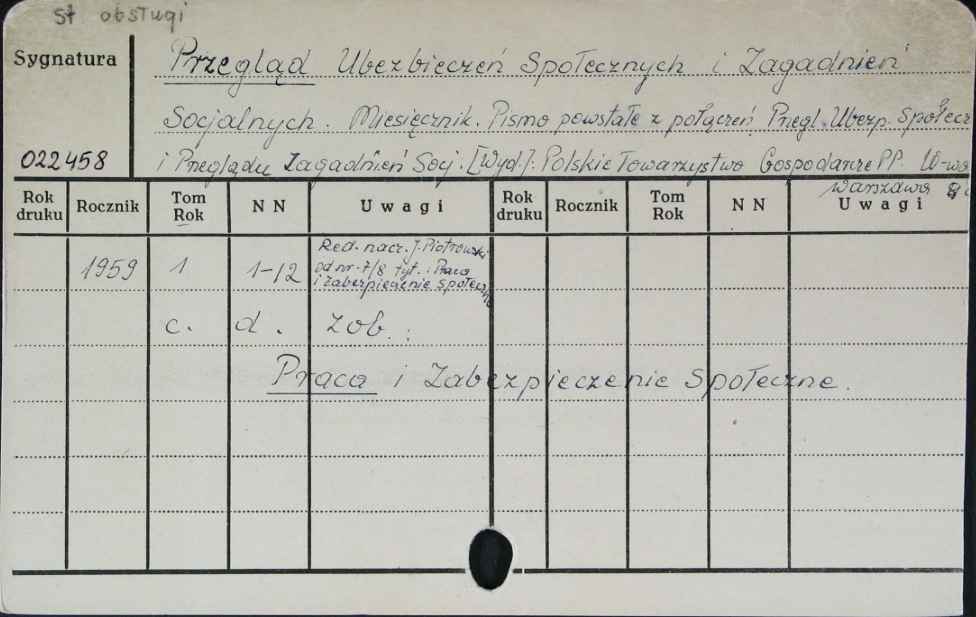 st obsługi
Sygnatura
022458
Przegląd Ubezbieczeń Społecznych i Zagadnień
Socjalnych. Miesięcznik. Pismo powstałe z połączeń Przegl. Ubezp. Społecz
i Przeglądu Zagadnień Socj. [Wyd]. Polskie Towarzystwo Gospodarcze PP. W-wa
Warszawa
Rok druku Rocznik Tom Rok N N Uwagi Rok druku Rocznik Tom Rok N N Uwagi
1959 1 1-12 Red. nacz. J. Piotrowski
od nr 7/8 tyt.: Praca
i zabezpieczenie społeczne
c. d. zob.:
Praca i Zabezpieczenie Społeczne.